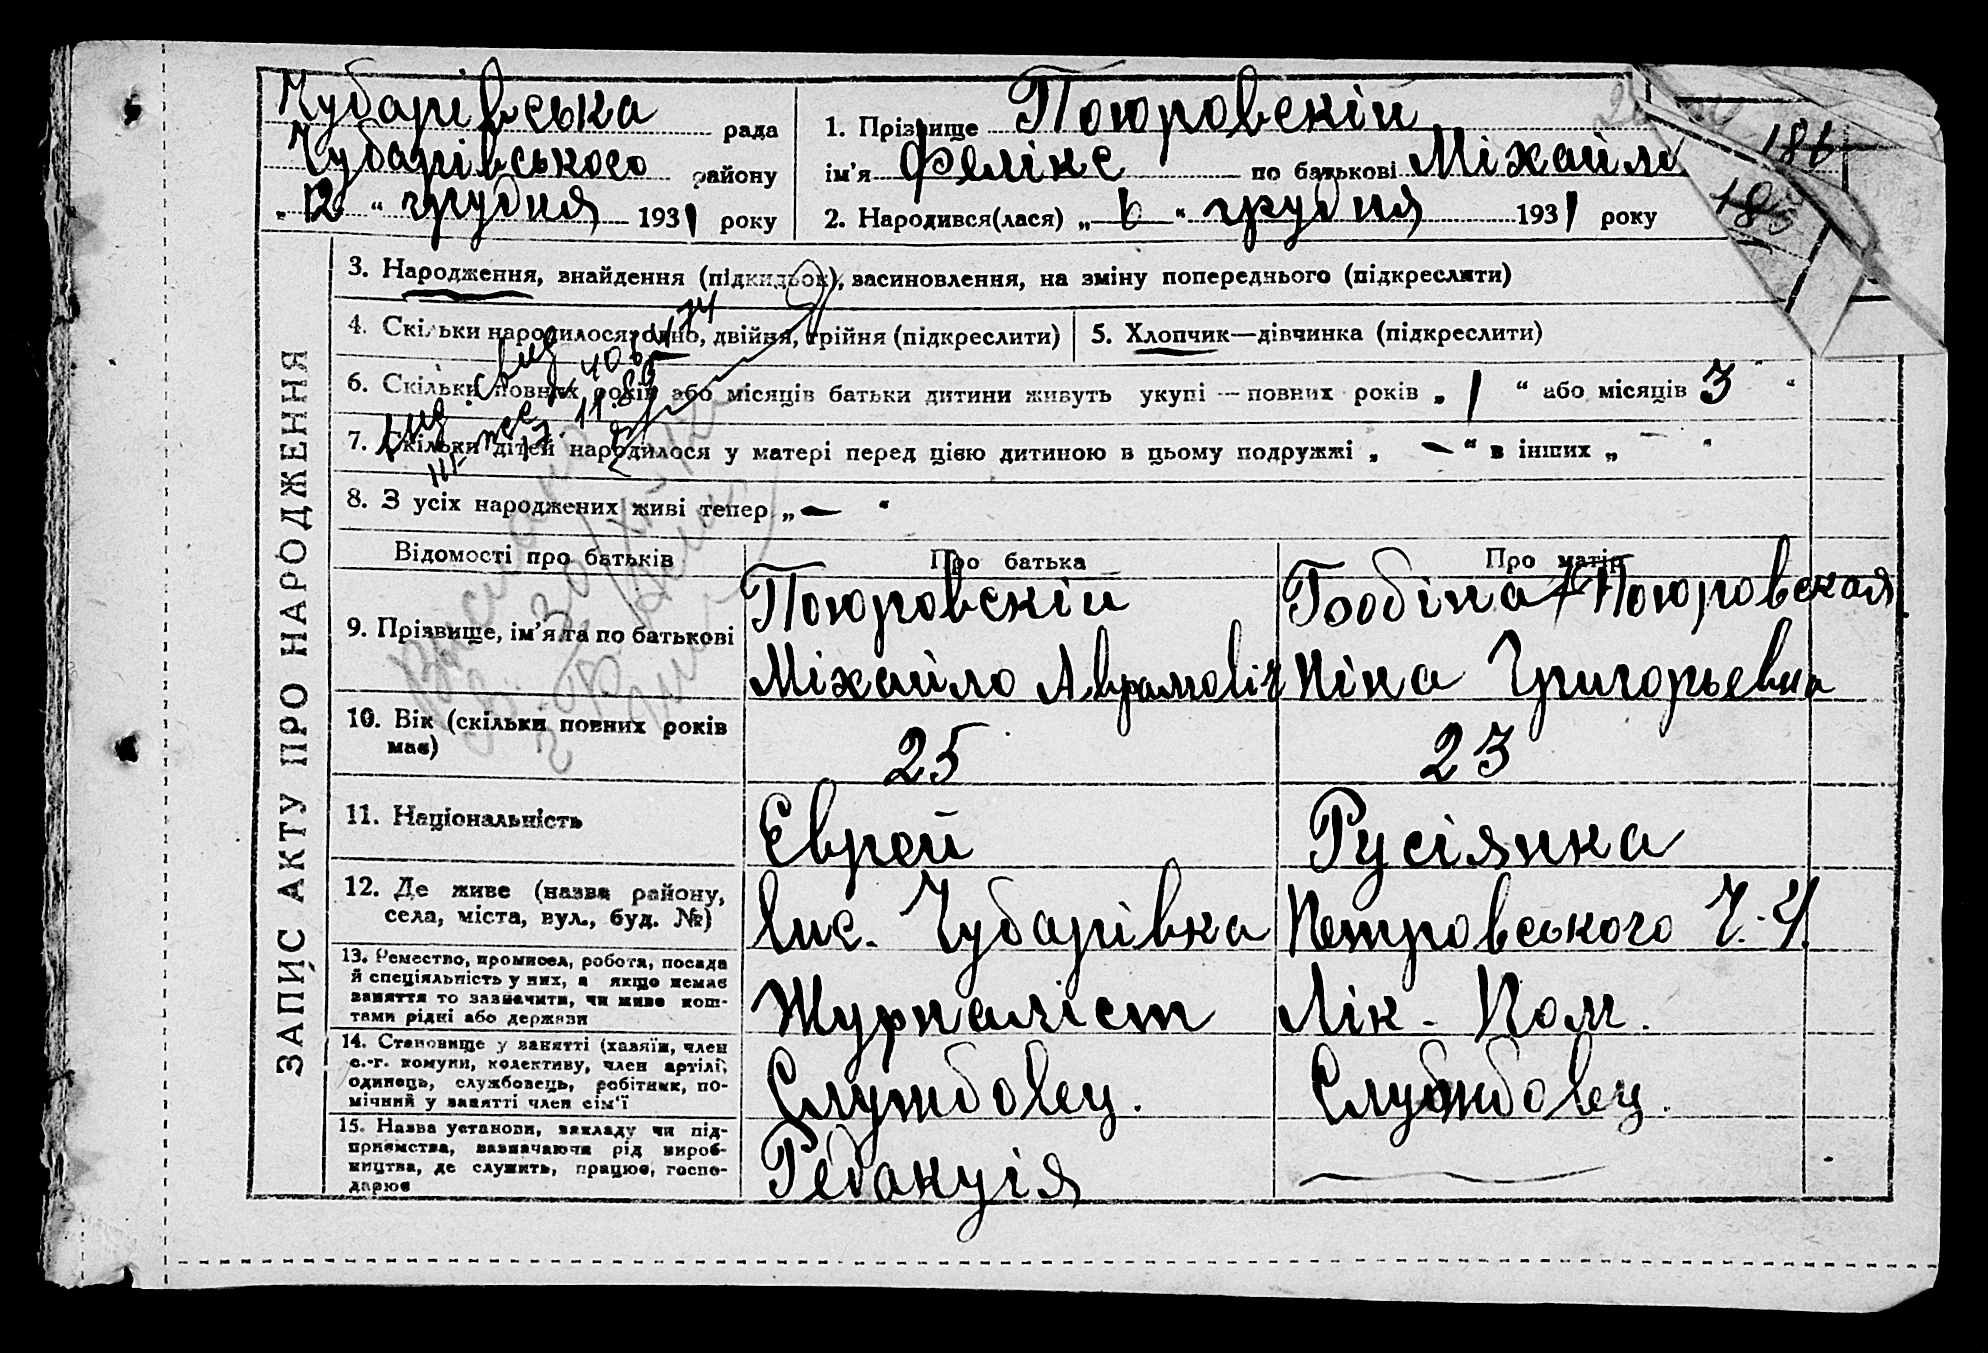 Чубарівська рада
Чубарівського району
„12“ грудня 1931 року
1. Прізвище Поюровскій
ім'я Фелікс по батькові Міхайло
2. Народився(лася) „6“ грудня 1931 року
186
185
ЗАПИС АКТУ ПРО НАРОДЖЕННЯ
3. Народження, знайдення (підкидьок), васиновлення, на зміну попереднього (підкреслити)
4. Скільки народилося: одно, двійня, трійня (підкреслити)
5. Хлопчик—дівчинка (підкреслити)
6. Скільки повних років або місяців батьки дитини живуть укупі — повних років „1“ або місяців 3 “
7. Скільки дітей народилося у матері перед цією дитиною в цьому подружжі „—“ в інших „ “
8. З усіх народжених живі тепер „—“
Відомості про батьків Про батька Про матір
9. Прізвище, ім'я та по батькові
Поюровскій
Міхайло Аврамовіч
Поюровская
Ніна Григорьевна
10. Вік (скільки повних років має)
25
23
11. Національність
Єврей
Русіянка
12. Де живе (назва району,
села, міста, вул., буд. №)
Чубарівка
Петровського
13. Ремество, промисел, робота, посада
й спеціяльність у них, а якщо немає
заняття то зазначити, чи живе кош-
тами рідні або держави
Журналіст
Лік. Пом.
14. Становище у занятті (хазяїн, член
с.-г. комуни, колективу, член артілі,
одинець, службовець, робітник, по-
мічний у занятті член сім'ї
Службовец.
Службовец.
15. Назва установи, закладу чи під-
приємства, зазначаючи рід вироб-
ництва, де служить, працює, госпо-
дарює
Редакція